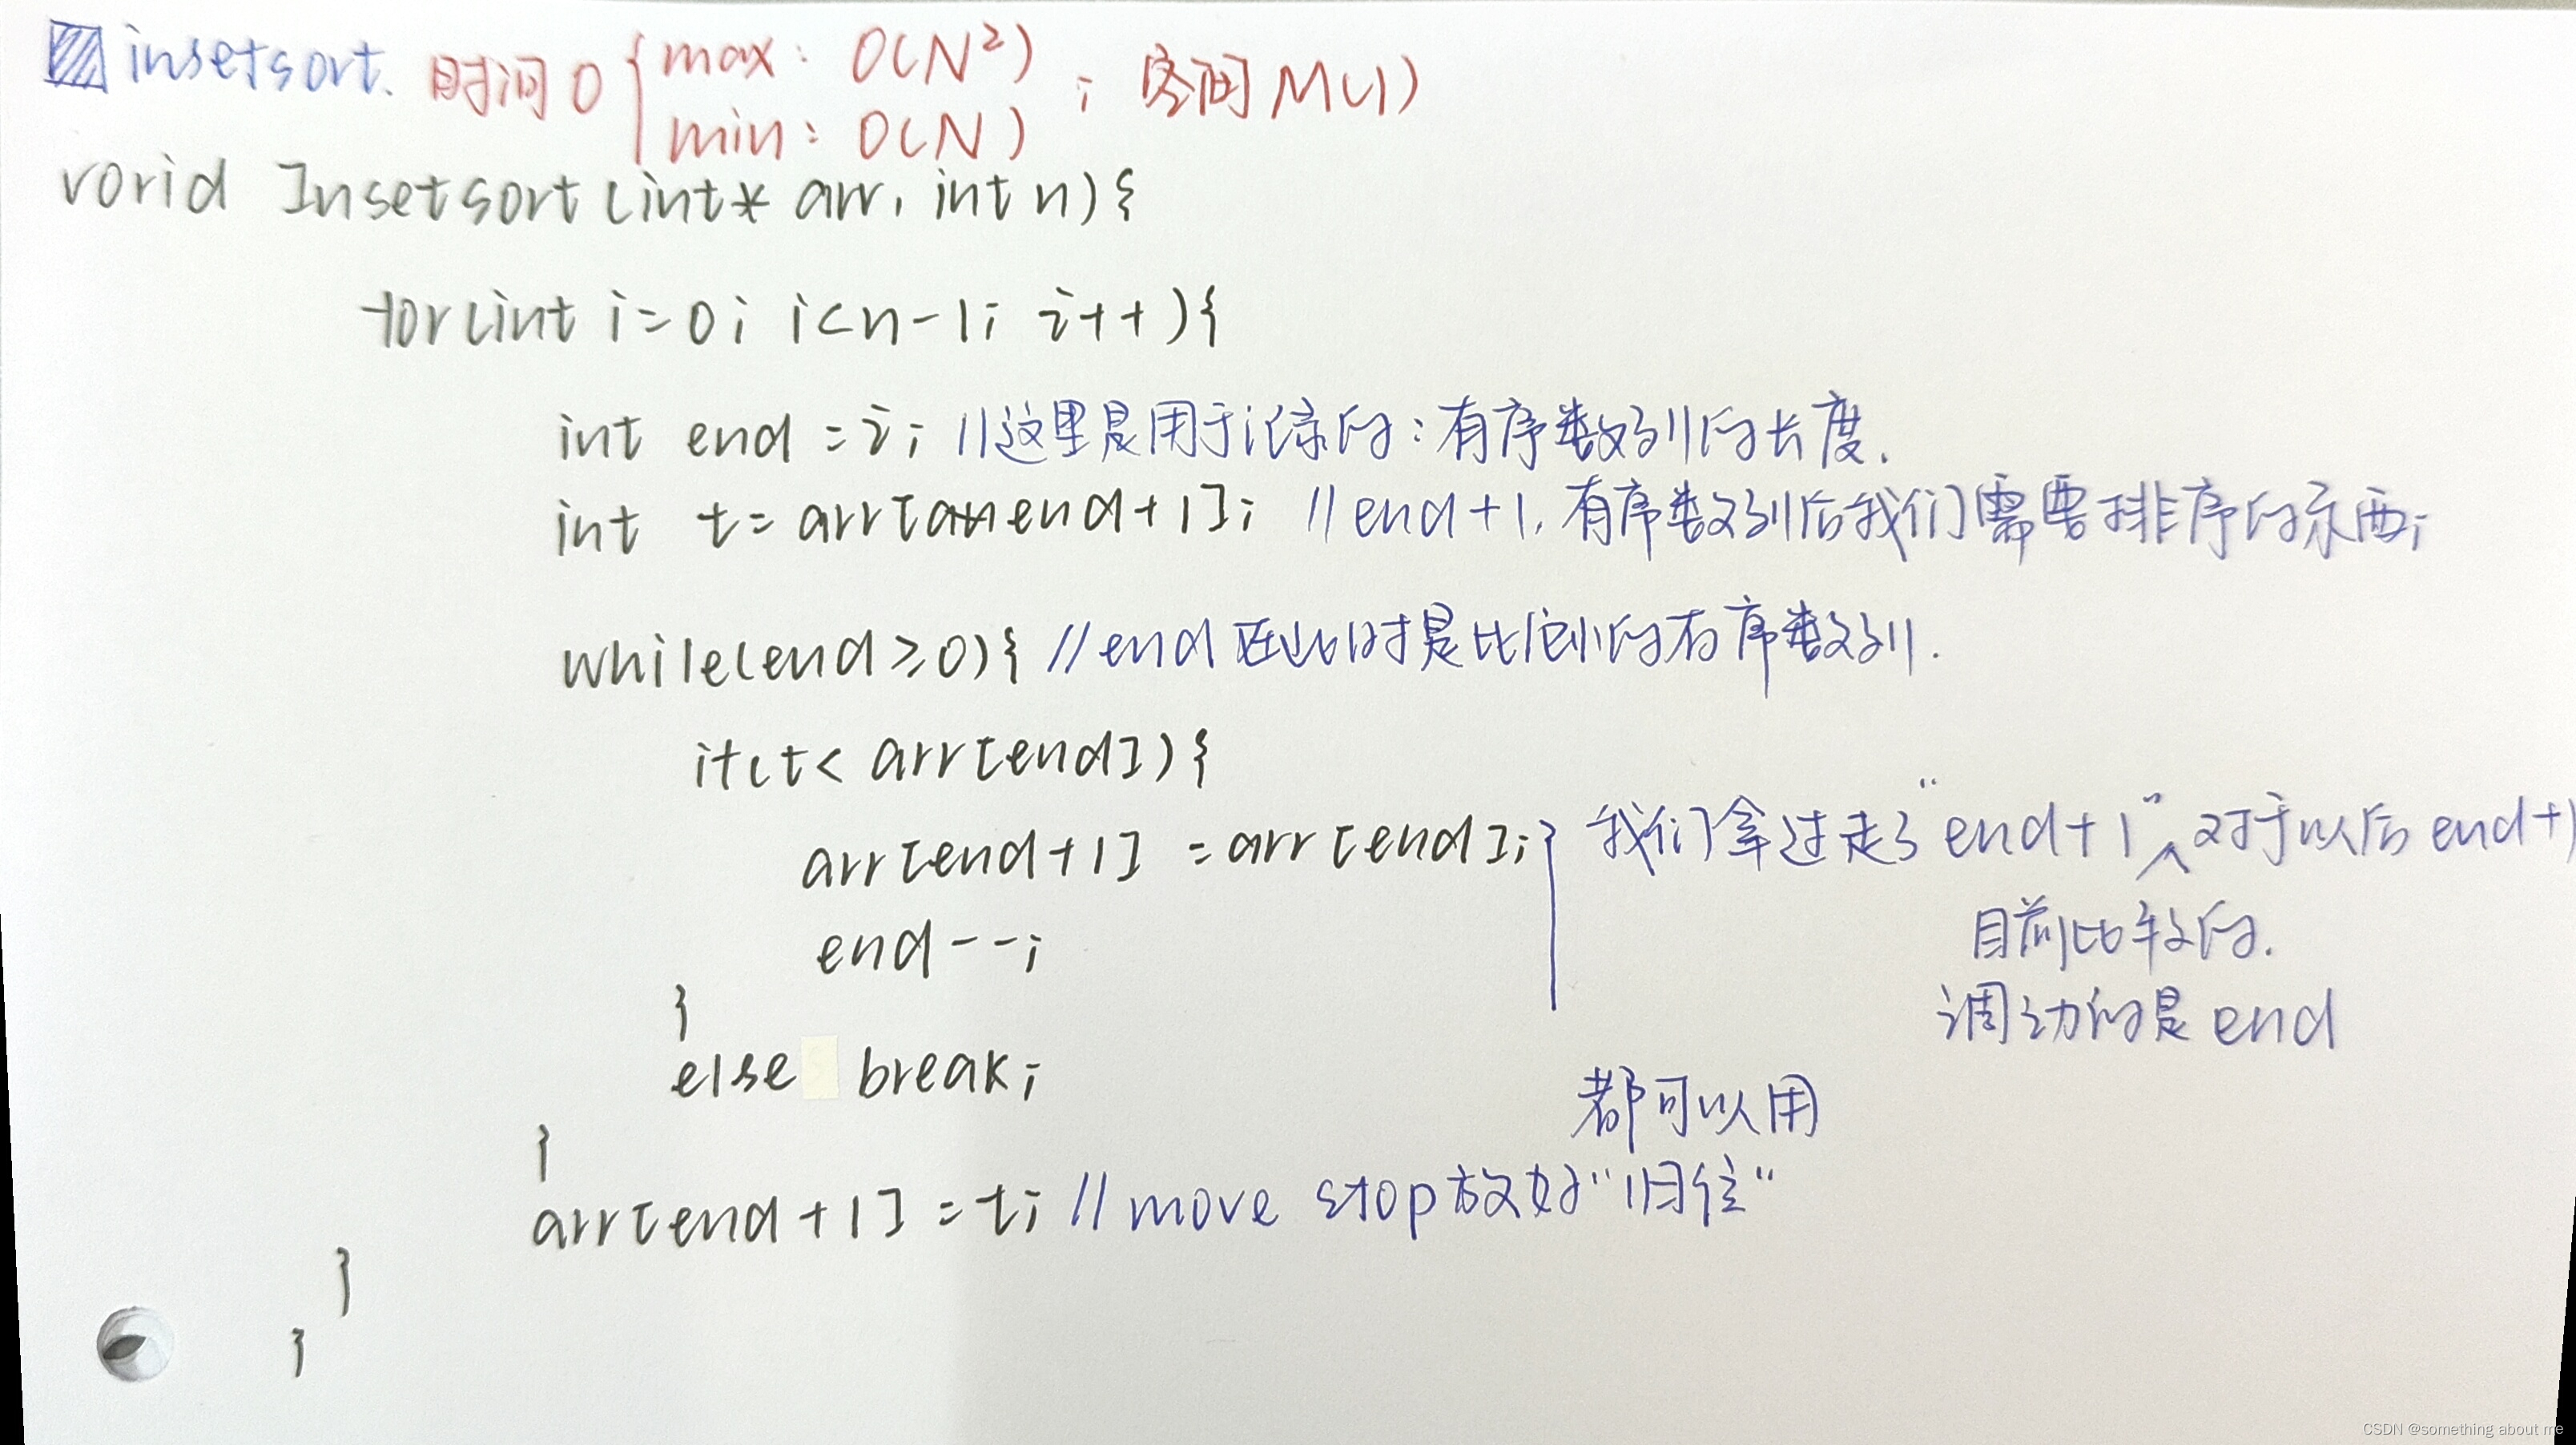 insetsort. 时间O { max: O(N²) ; 空间M(1)
min: O(N)
vorid Insetsort(int* arr, int n){
for(int i=0; i<n-1; i++){
int end = i; //这里是用于记录的:有序数列的长度.
int t = arr[end+1]; //end+1,有序数列后我们需要排序的东西;
while(end≥0){ //end在此时是比他小的有序数列.
if(t< arr[end]){
arr[end+1] = arr[end]; 我们拿过走了"end+1" 对于以后end+1
end--; 目前比较的.
} 调动的是end
else break;
都可以用
}
arr[end+1] = t; //move stop放好"归位"
}
}
CSDN @something about me